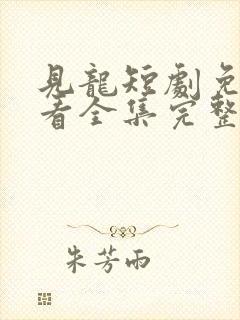 見龍短劇免
看全集完整
朱芳雨